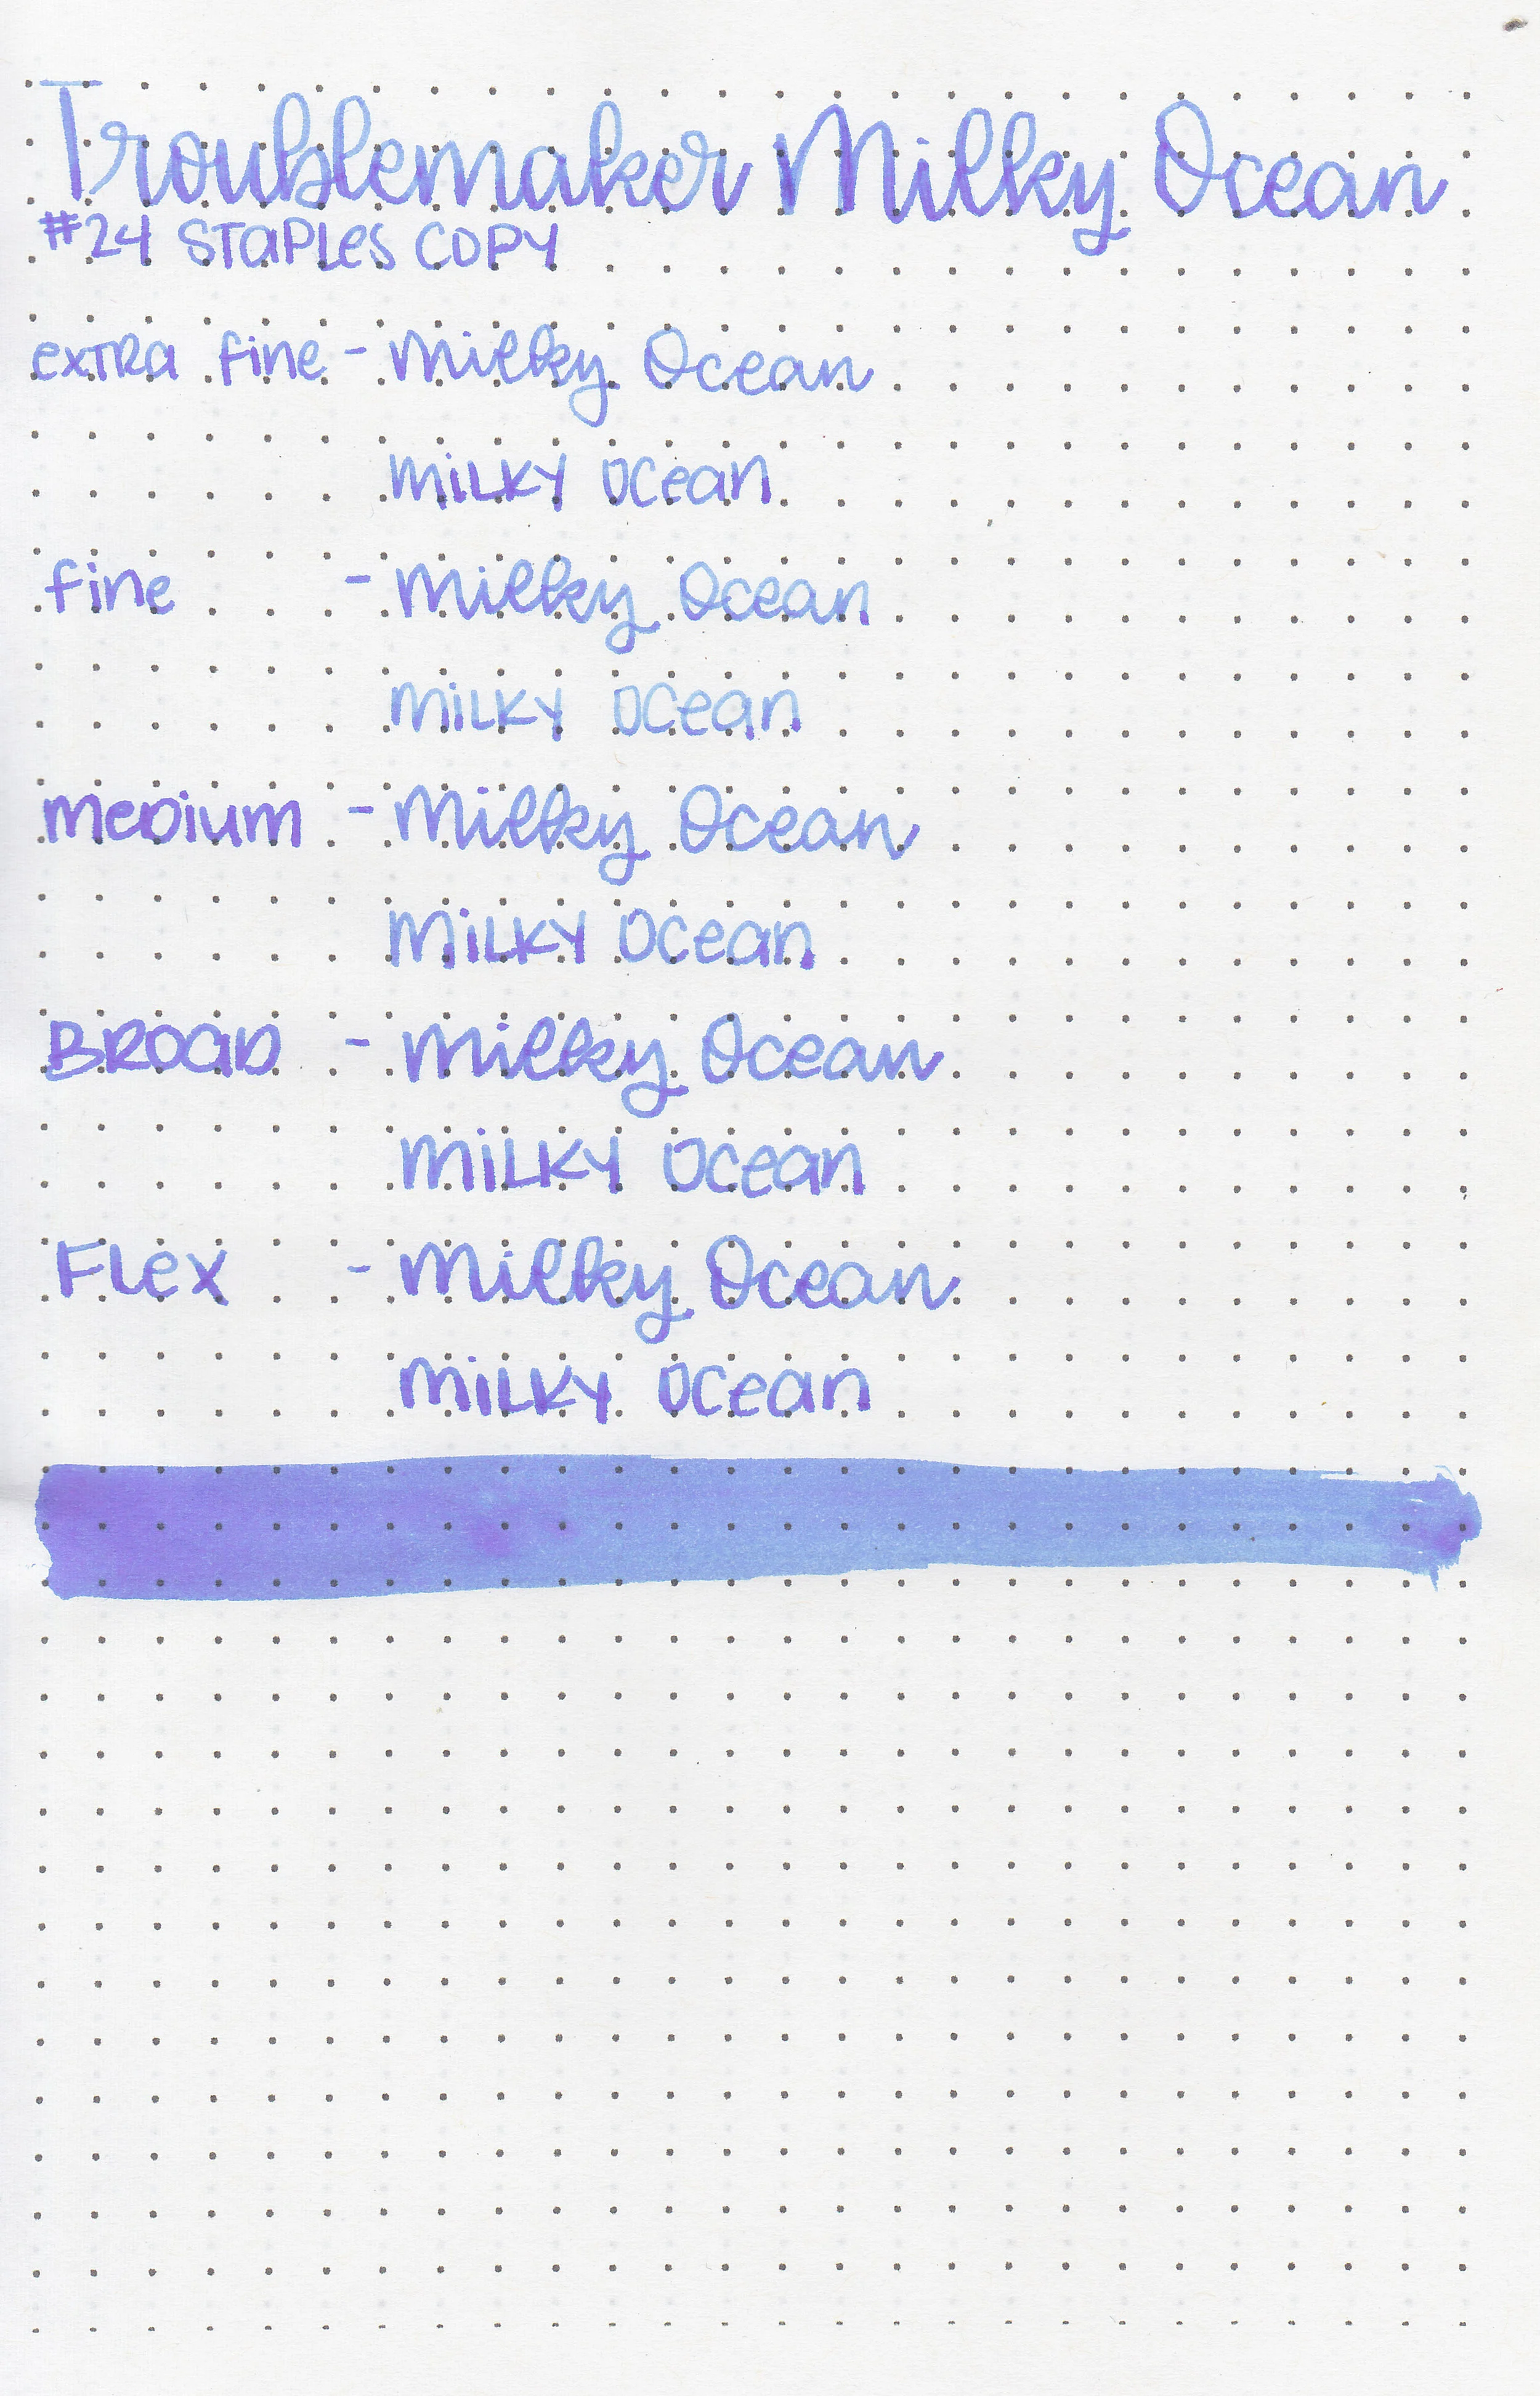 Troublemaker Milky Ocean
#24 STaPLes COPY
exTRa fine - Milky Ocean
MiLKY OCean
fine - Milky Ocean
MiLKY OCean
MeDium - Milky Ocean
MiLKY OCean
BROaD - Milky Ocean
MiLKY OCean
FLex - Milky Ocean
MiLKY OCean